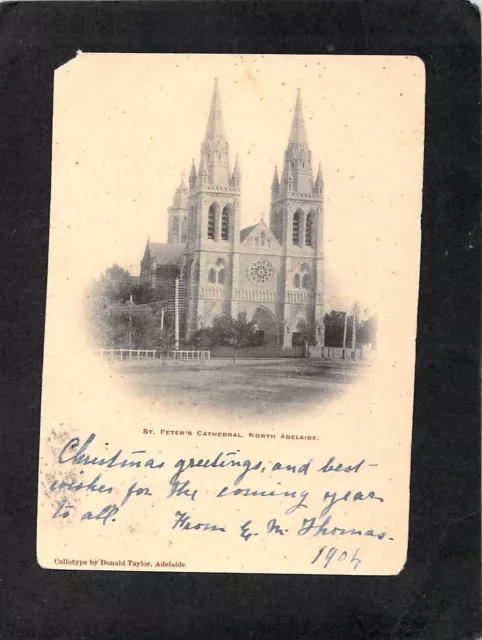 St. Peter's Cathedral, North Adelaide.
Christmas greetings, and best
wishes for the coming year
to all. From E. M. Thomas.
1904
Collotype by Donald Taylor, Adelaide